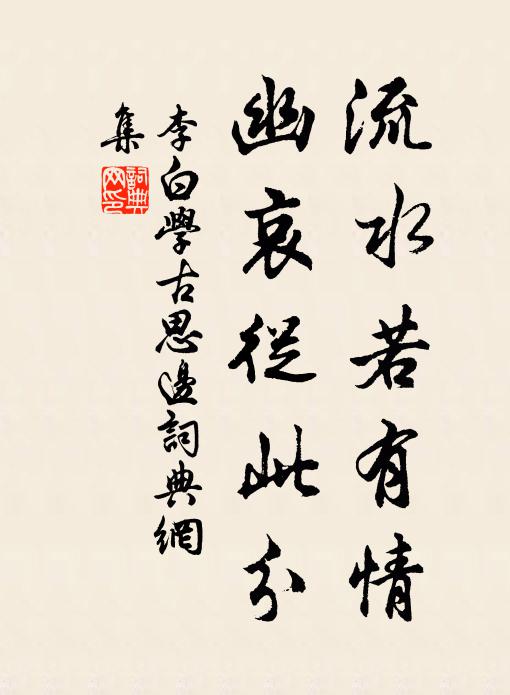 流水若有情
幽哀從此分
李白學古思邊詞典網
集
詞典
网印